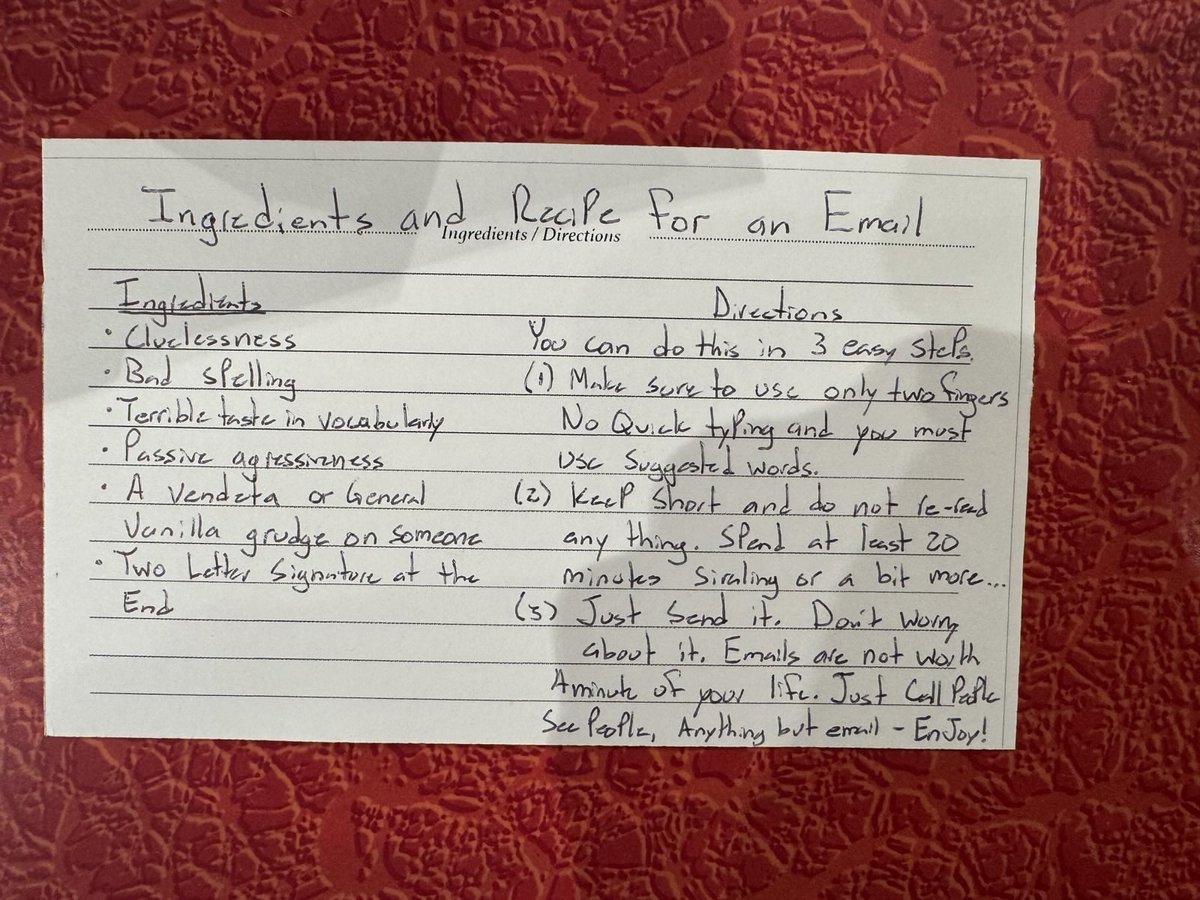 Ingredients and Recipe for an Email
Ingredients / Directions
Ingredients
• Cluelessness
• Bad spelling
• Terrible taste in vocabularly
• Passive agressiveness
• A vendeta or General
Vanilla grudge on someone
• Two Letter Signature at the
End
Directions
You can do this in 3 easy steps.
(1) Make sure to use only two fingers
No Quick typing and you must
use suggested words.
(2) Keep short and do not re-read
any thing. Spend at least 20
minutes siraling or a bit more...
(3) Just Send it. Don't worry
about it. Emails are not worth
A minute of your life. Just Call People
See People, Anything but email - EnJoy!